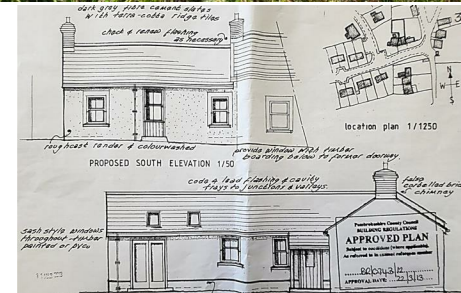 dark grey fibre cement slates
with terra-cotta ridge tiles
check & renew flashing
as necessary
3
N
W E
S
location plan 1/1250
roughcast render & colourwashed
provide window with timber
boarding below to former doorway.
PROPOSED SOUTH ELEVATION 1/50
code 4 lead flashing & cavity
trays to junctions & valleys.
false
corbelled brick
chimney
sash style windows
throughout timber
painted or pvc.
Pembrokeshire County Council
BUILDING REGULATIONS
APPROVED PLAN
Subject to conditions (where applicable).
As referred to in contact reference number
APPROVAL DATE: 22/3/13